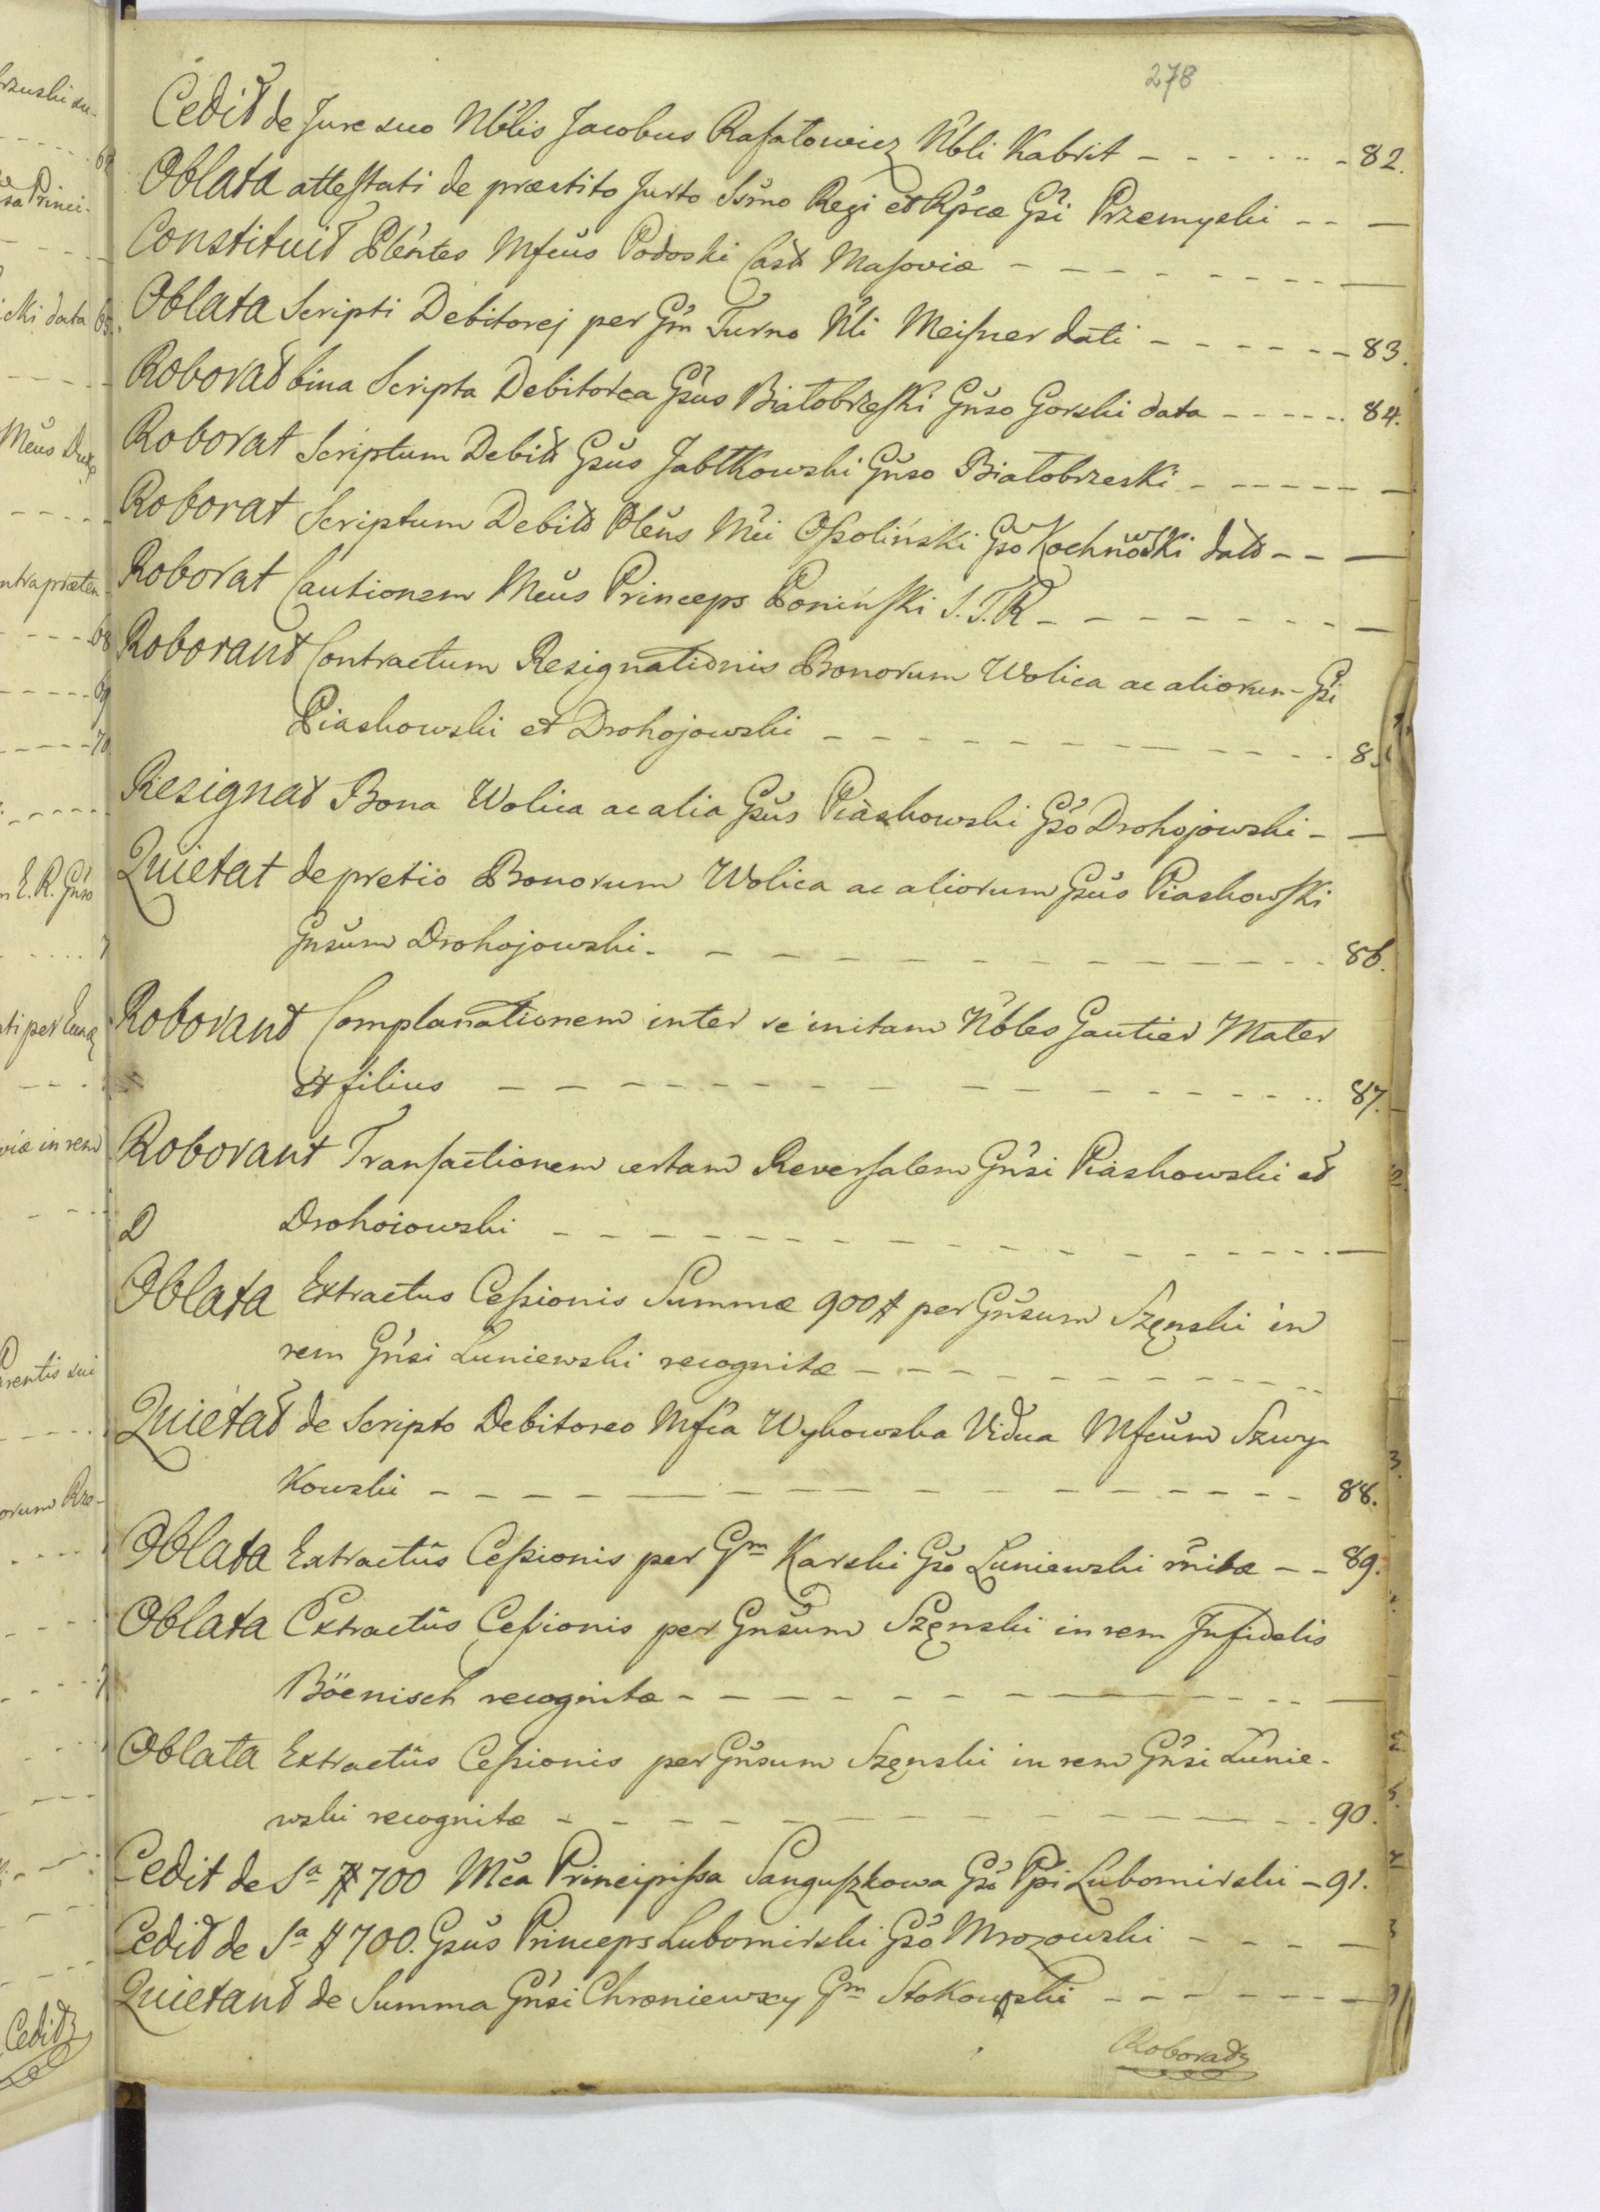 278
Cedit de Jure suo Nblis Jacobus Rafałowicz Nbli Kabrit - - - - - - 82.
Oblata attestati de præstito Jurto Ssmo Regi et Rpcæ Gsi Przemyski - - —
Constituit Plentes Mfcus Podoski Cast Masoviæ - - - - - - - —
Oblata Scripti Debitorej per Gm Turno Nli Meisner dati - - - - - - 83.
Roborat bina Scripta Debitorea Gsus Białobrzeski Gnso Gorski data - - - - - - 84.
Roborat Scriptum Debit Gsus Jabłkowski Gnso Białobrzeski - - - - - - —
Roborat Scriptum Debit Plens Mci Ossoliński Gso Kochnowski dato - - —
Roborat Cautionem Mcus Princeps Poniński S. T. R - - - - - - - —
Roborant Contractum Resignationis Bonorum Wolica ac aliorum Gsi
Piaskowski et Drohojowski - - - - - - - - - - - - 8
Resignat Bona Wolica ac alia Gsus Piaskowski Gso Drohojowski - —
Quietat de pretio Bonorum Wolica ac aliorum Gsus Piaskowski
Gnsum Drohojowski. - - - - - - - - - - 86.
Roborant Complanationem inter se initam Nbles Gautier Mater
et filius - - - - - - - - - - - - - 87.
Roborant Transactionem certam Reversalem Gnsi Piaskowski et
D Drohoiowski - - - - - - - - - - - - - —
Oblata Extractus Cessionis Summæ 900 # per Gnsum Szęnski in
rem Gnsi Łuniewski recognitæ - - - - - - - - -
Quietat de Scripto Debitoreo Mfca Wyhowska Vidua Mfcum Szwy-
kowski - - - - - - - - - - - - - - 88.
Oblata Extractus Cessionis per Gm Karski Gso Łuniewski rnitæ - - 89.
Oblata Extractus Cessionis per Gnsum Szęnski in rem Infidelis
Böenisch recognitæ - - - - - - - - - - - —
Oblata Extractus Cessionis per Gnsum Szęnski in rem Gnsi Łunie-
wski recognitæ - - - - - - - - - - - - 90.
Cedit de Sa # 700 Mca Principissa Sanguszkowa Gso Ppi Lubomirski - 91.
Cedit de Sa # 700. Gsus Princeps Lubomirski Gso Mrozowski - - - —
Quietant de Summa Gnsi Chroniewscy Gm Stokowski - - - - - - —
Roborat